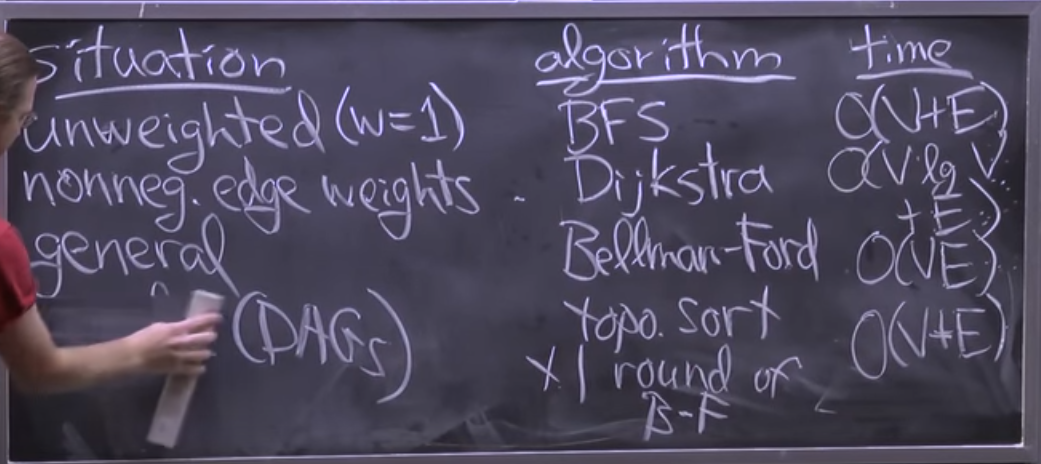 situation algorithm time
unweighted (w=1) BFS O(V+E)
nonneg. edge weights Dijkstra O(V lg V
+ E)
general Bellman-Ford O(VE)
(DAGs) topo. sort O(V+E)
+ 1 round of
B-F